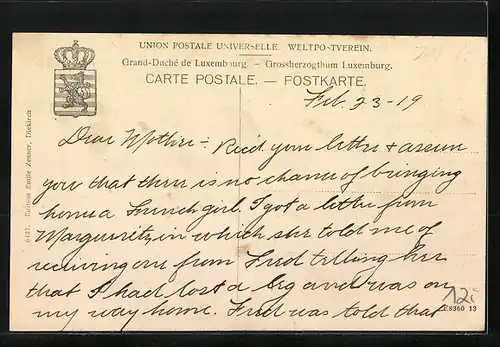 UNION POSTALE UNIVERSELLE. WELTPOSTVEREIN.
Grand-Duché de Luxembourg. — Grossherzogthum Luxemburg.
CARTE POSTALE. — POSTKARTE.
Feb. 23-19
Dear Mother :- Rec'd your letter & assure
you that there is no chance of bringing
home a French girl. I got a letter from
Marguerite in which she told me of
receiving one from Fred telling her
that I had lost a leg and was on
my way home. Fred was told that
6427. Edition Emile Zenner, Diekirch
12.
E8360 13